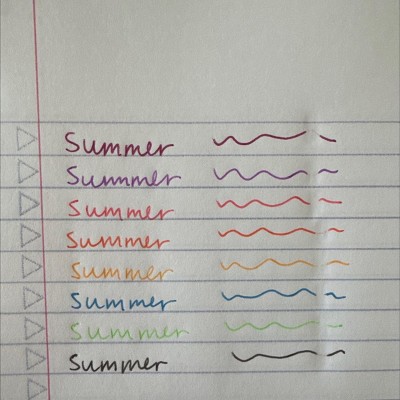 Summer
Summer
Summer
Summer
Summer
Summer
Summer
Summer